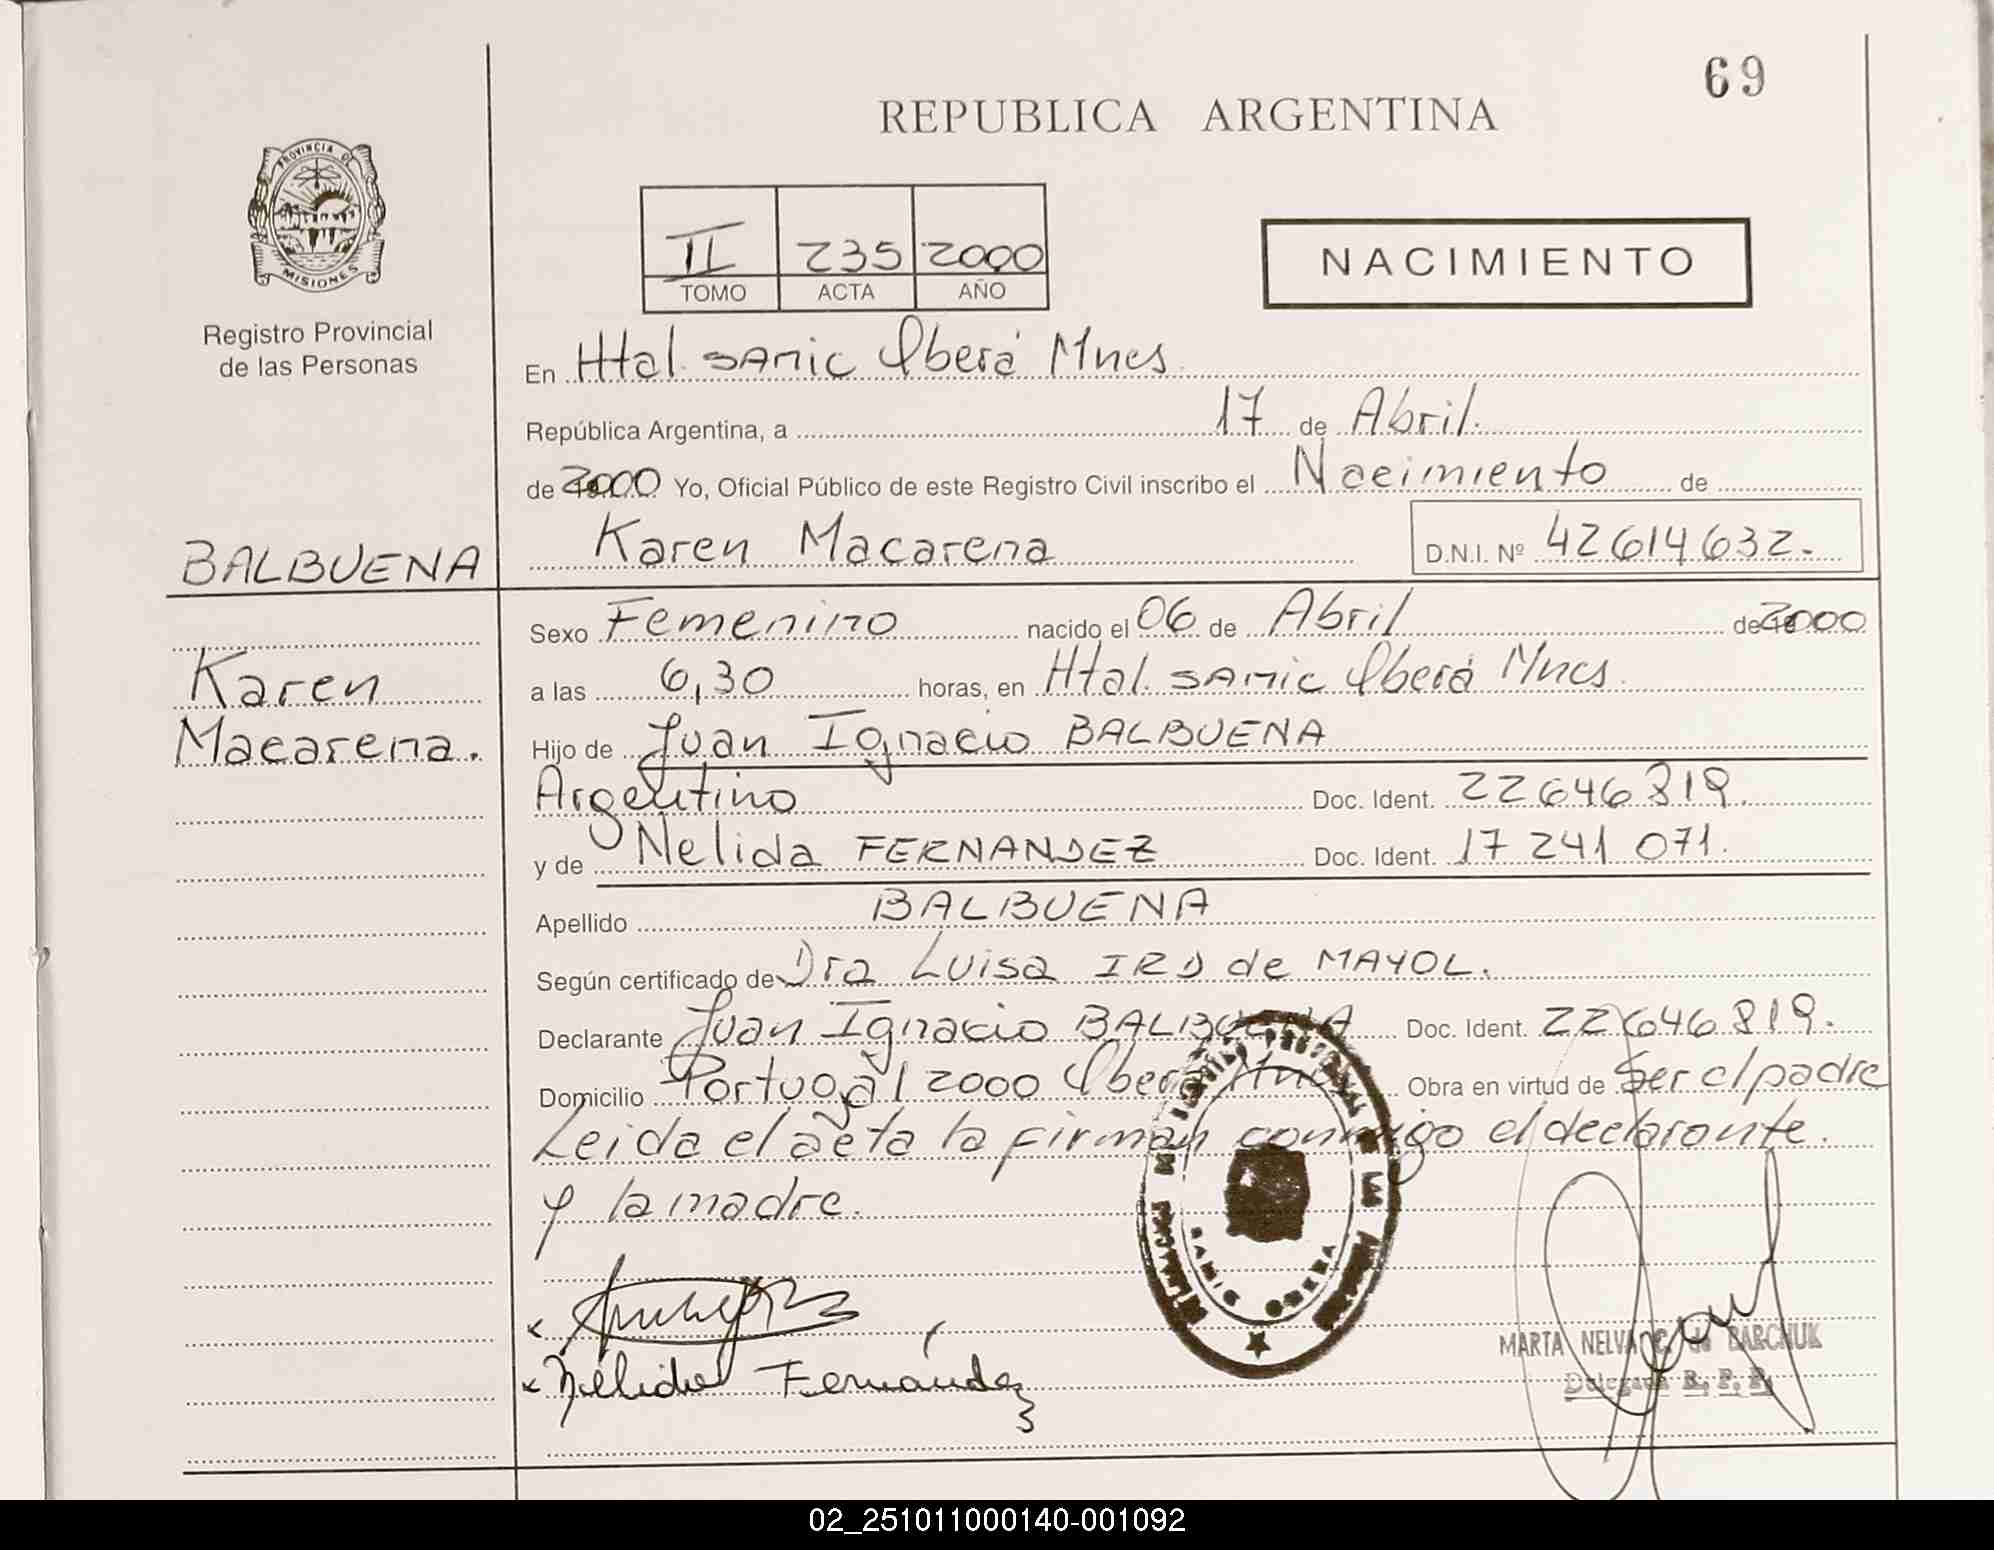 69
REPUBLICA ARGENTINA
PROVINCIA DE
MISIONES
Registro Provincial
de las Personas
II 235 2000
TOMO ACTA AÑO
NACIMIENTO
En Htal. SAMIC Oberá Mnes.
República Argentina, a 17 de Abril.
de 2000 Yo, Oficial Público de este Registro Civil inscribo el Nacimiento de
BALBUENA
Karen Macarena D.N.I. Nº 42614632.
Karen
Macarena.
Sexo Femenino nacido el 06 de Abril de 2000
a las 6,30 horas, en Htal. SAMIC Oberá Mnes.
Hijo de Juan Ignacio BALBUENA
Argentino Doc. Ident. 22646819.
y de Nelida FERNANDEZ Doc. Ident. 17 241 071.
Apellido BALBUENA
Según certificado de Dra Luisa IRD de MAYOL.
Declarante Juan Ignacio BALBUENA Doc. Ident. 22646819.
Domicilio Portugal 2000 Oberá Mnes Obra en virtud de Ser el padre
Leida el acta la firman conmigo el declarante.
y la madre.
SAMIC OBERA
x
x Nélida Fernández
MARTA NELVA C. de BARCHUK
Delegada R. P. P.
02_251011000140-001092